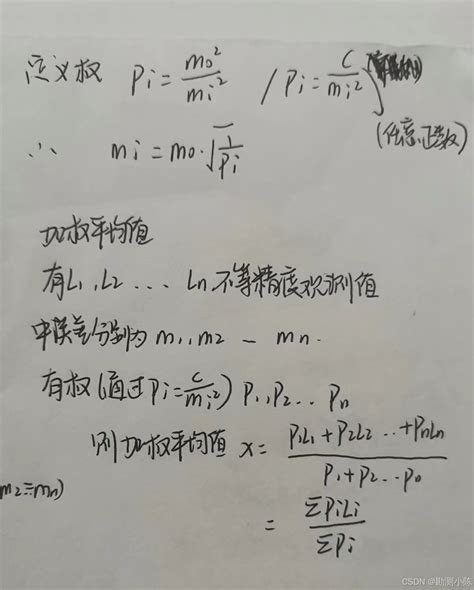 定义权 Pi = m₀²/mi² / Pi = C/mi²
(任意正数)
∴ mi = m₀·√(1/Pi)
加权平均值
有L₁,L₂ ... Ln不等精度观测值
中误差分别为 m₁,m₂ — mn.
有权(通过Pi=C/mi²) P₁,P₂..Pn
则加权平均值 x = (P₁L₁+P₂L₂...+PnLn)/(P₁+P₂...Pn)
m₂=mn)
= ΣPiLi/ΣPi
CSDN @勘测小陈